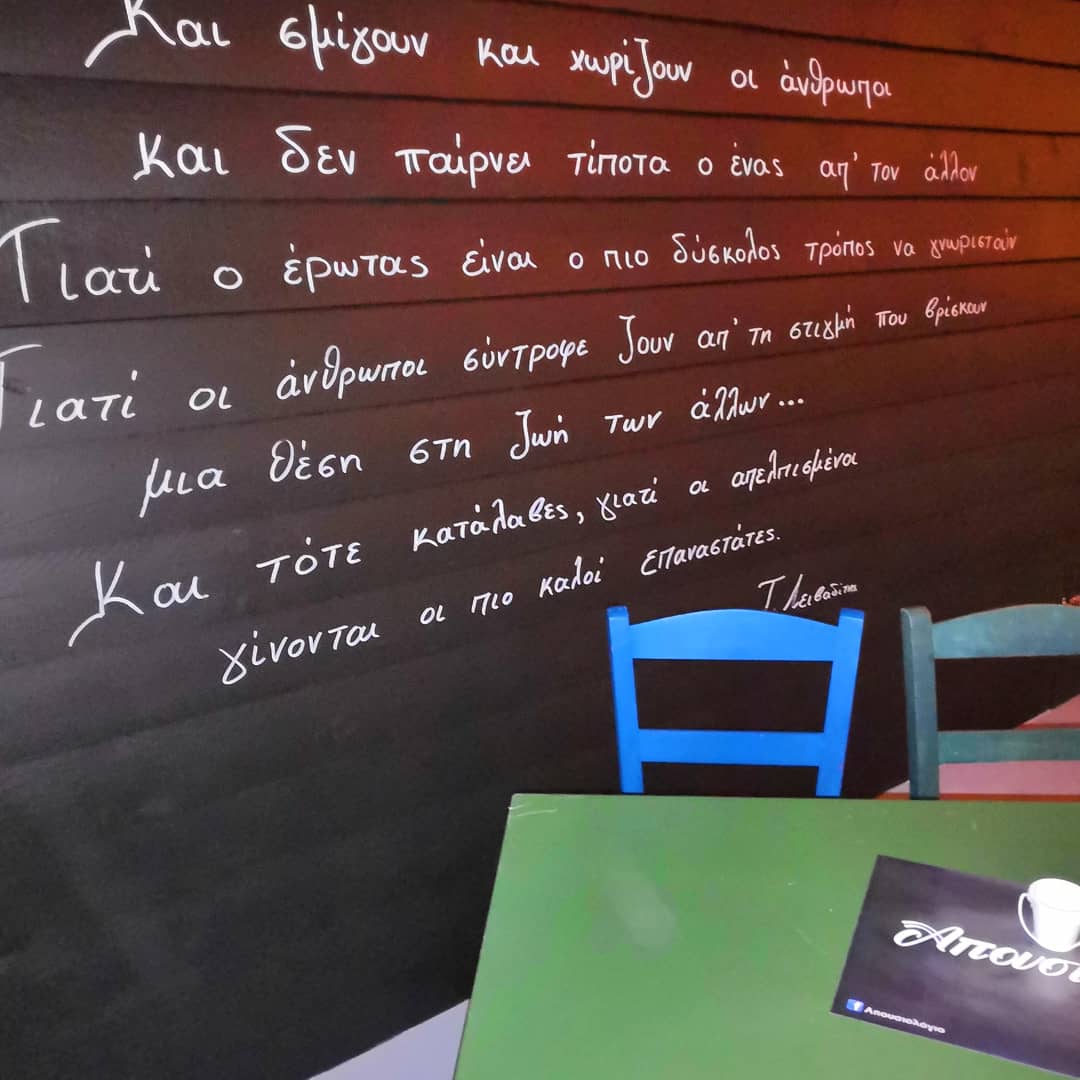 Και σμίγουν και χωρίζουν οι άνθρωποι
και δεν παίρνει τίποτα ο ένας απ' τον άλλον
Γιατί ο έρωτας είναι ο πιο δύσκολος τρόπος να γνωριστούν
Γιατί οι άνθρωποι σύντροφε ζουν απ' τη στιγμή που βρίσκουν
μια θέση στη ζωή των άλλων...
Και τότε κατάλαβες, γιατί οι απελπισμένοι
γίνονται οι πιο καλοί επαναστάτες.
Τ. Λειβαδίτης
Απουσι
Απουσιολόγιο